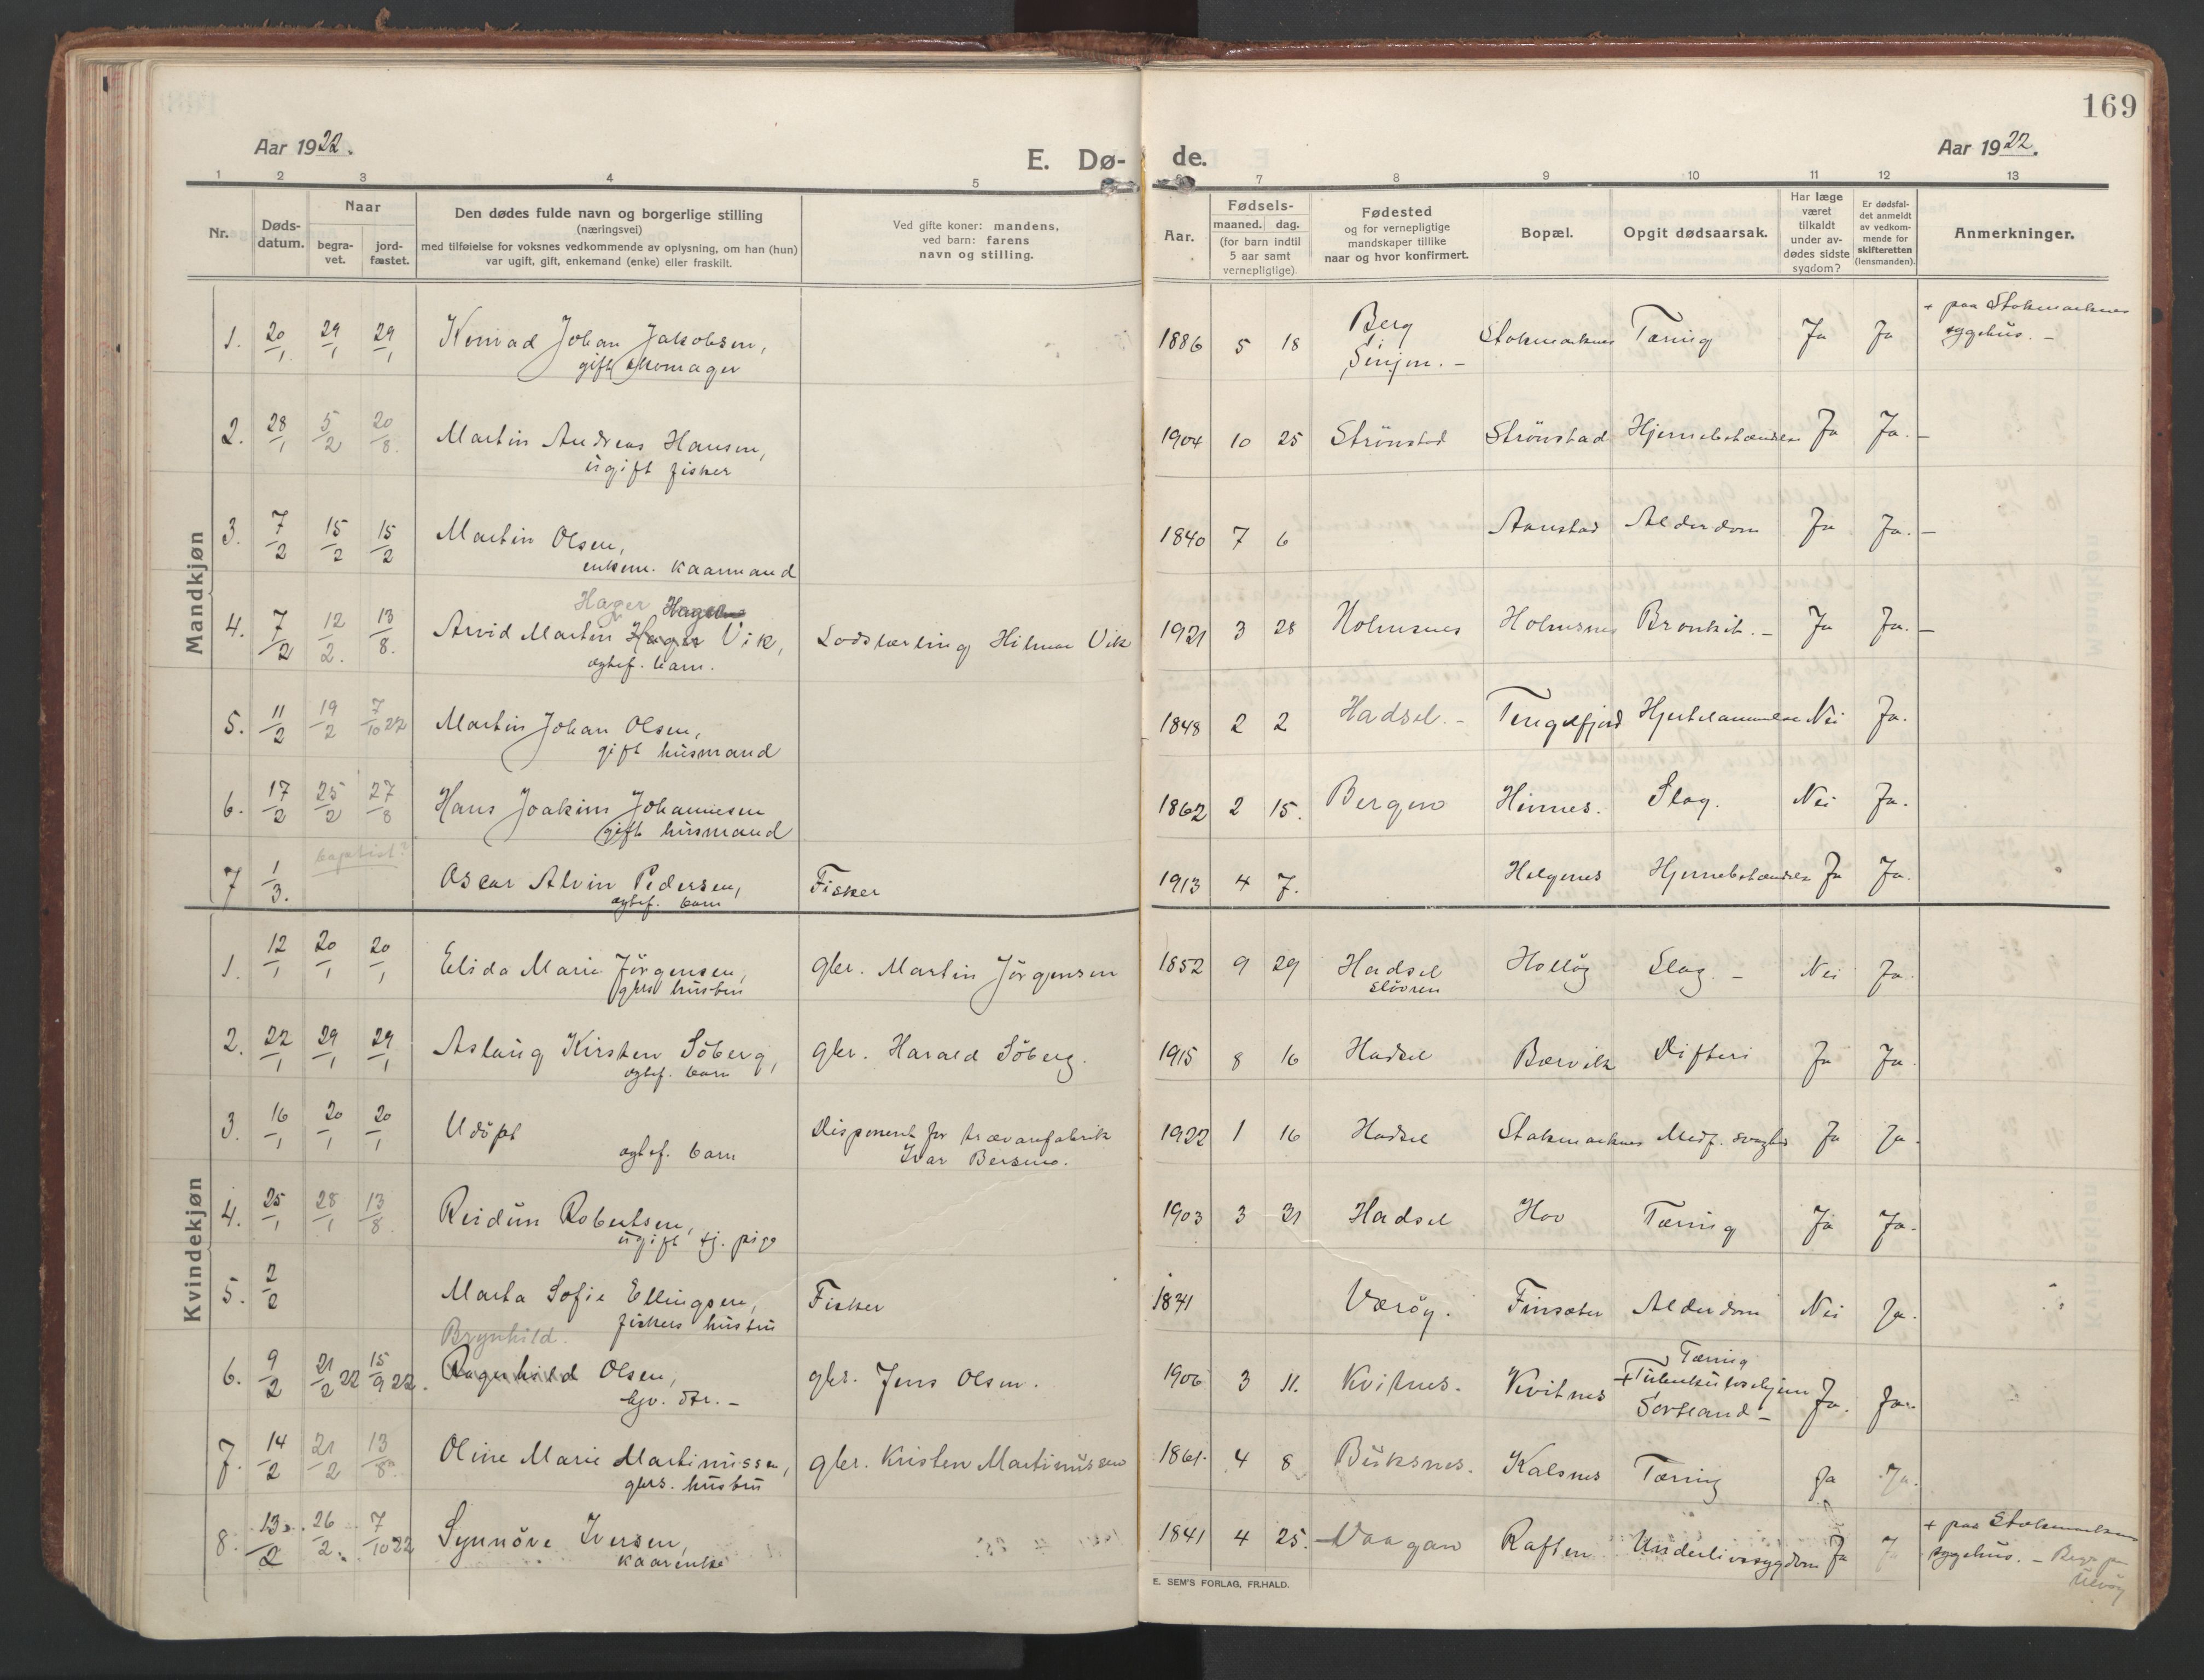 169
Aar 1922.
E. Dø- de.
Aar 1922.
1 2 3 4 5 6 7 8 9 10 11 12 13
Nr.
Døds-
datum.
Naar
begra-
vet.
jord-
fæstet.
Den dødes fulde navn og borgerlige stilling
(næringsvei)
med tilføielse for voksnes vedkommende av oplysning, om han (hun)
var ugift, gift, enkemand (enke) eller fraskilt.
Ved gifte koner: mandens,
ved barn: farens
navn og stilling.
Aar.
Fødsels-
maaned. dag.
(for barn indtil
5 aar samt
vernepligtige).
Fødested
og for vernepligtige
mandskaper tillike
naar og hvor konfirmert.
Bopæl.
Opgit dødsaarsak.
Har læge
været
tilkaldt
under av-
dødes sidste
sygdom?
Er dødsfal-
det anmeldt
av vedkom-
mende for
skifteretten
(lensmanden).
Anmerkninger.
Mandkjøn
1. 20/1. 29/1 29/1 Konrad Johan Jakobsen, 1886 5 18 Berg Stokmarknes Tæring Ja Ja + paa Stokmarknes
gift skomager Senjen. – sygehus. –
2. 28/1 5/2 20/8. Martin Andreas Hansen, 1904 10 25 Strönstad Strönstad Hjernebetændelse Ja Ja. –
ugift fisker
3. 7/2 15/2 15/2 Martin Olsen, 1840 7 6 Aanstad Alderdom Ja Ja. –
enkem. kaarmand
Hager
4. 7/2 12/2. 13/8. Arvid Martin Hager Vik, Lodslærling Hilmar Vik 1921 3 28 Holmsnes Holmsnes Bronkit. – Ja Ja. –
ægtef. barn.
5. 11/2 19/2 7/10 22 Martin Johan Olsen, 1848 2 2 Hadsel. – Tengelfjord Hjertelammelse Nei Ja.
gift husmand
6. 17/2 25/2 27/8 Hans Joakim Johannesen 1862 2 15. Bergen Hinnes. Slag. Nei Ja.
gift husmand
baptist?
7 1/3. Oscar Alvin Pedersen, Fisker 1913 4 7. Helgenes Hjernebetændelse Ja Ja.
ægtef. barn
Kvindekjøn
1. 12/1 20/1 20/1 Elida Marie Jörgensen, gbr. Martin Jörgensen 1852 9 29 Hadsel Slag. – Nei Ja.
gbrs hustru
2. 22/1 29/1 29/1 Aslaug Kirsten Söberg, gbr. Harald Söberg. 1915 8 16 Hadsel Børvik Difteri Ja Ja.
ægtef. barn
3. 16/1 20/1 20/1 Udöpt Disponent for trævarefabrik 1922 1 16 Hadsel Stokmarknes Medf. svaghed Ja Ja.
ægtef. barn Ivar
4. 25/1 28/1 13/8. Reidun Robertsen, 1903 3 31 Hadsel Hov Tæring Ja Ja.
ugift tj. pige
5. 2/2 Marta Sofie Ellingsen, Fisker 1841 Værøy. Finsæter Alderdom Nei Ja.
fiskers hustru
Brynhild. Tæring
6. 9/2 21/2 22 15/9 22. Ragnhild Olsen, gbr. Jens Olsen. 1906 3 11. Kvitnes. Kvitnes + Tuberkulosehjem Ja. Ja.
gbr. dtr. – Sortland –
7. 14/2 21/2 13/8. Oline Marie Martinussen, gbr. Kristen Martinussen 1861. 4 8 Buksnes. Kalsnes Tæring Ja Ja.
gbrs. hustru
8. 13/2 26/2. 7/10 22 Synnöve Iversen, 1841 4 25. Vaagan Raften Underlivssygdom Ja J + paa Stokmarknes
kaarenke sygehus. –
E. SEM'S FORLAG, FR.HALD.